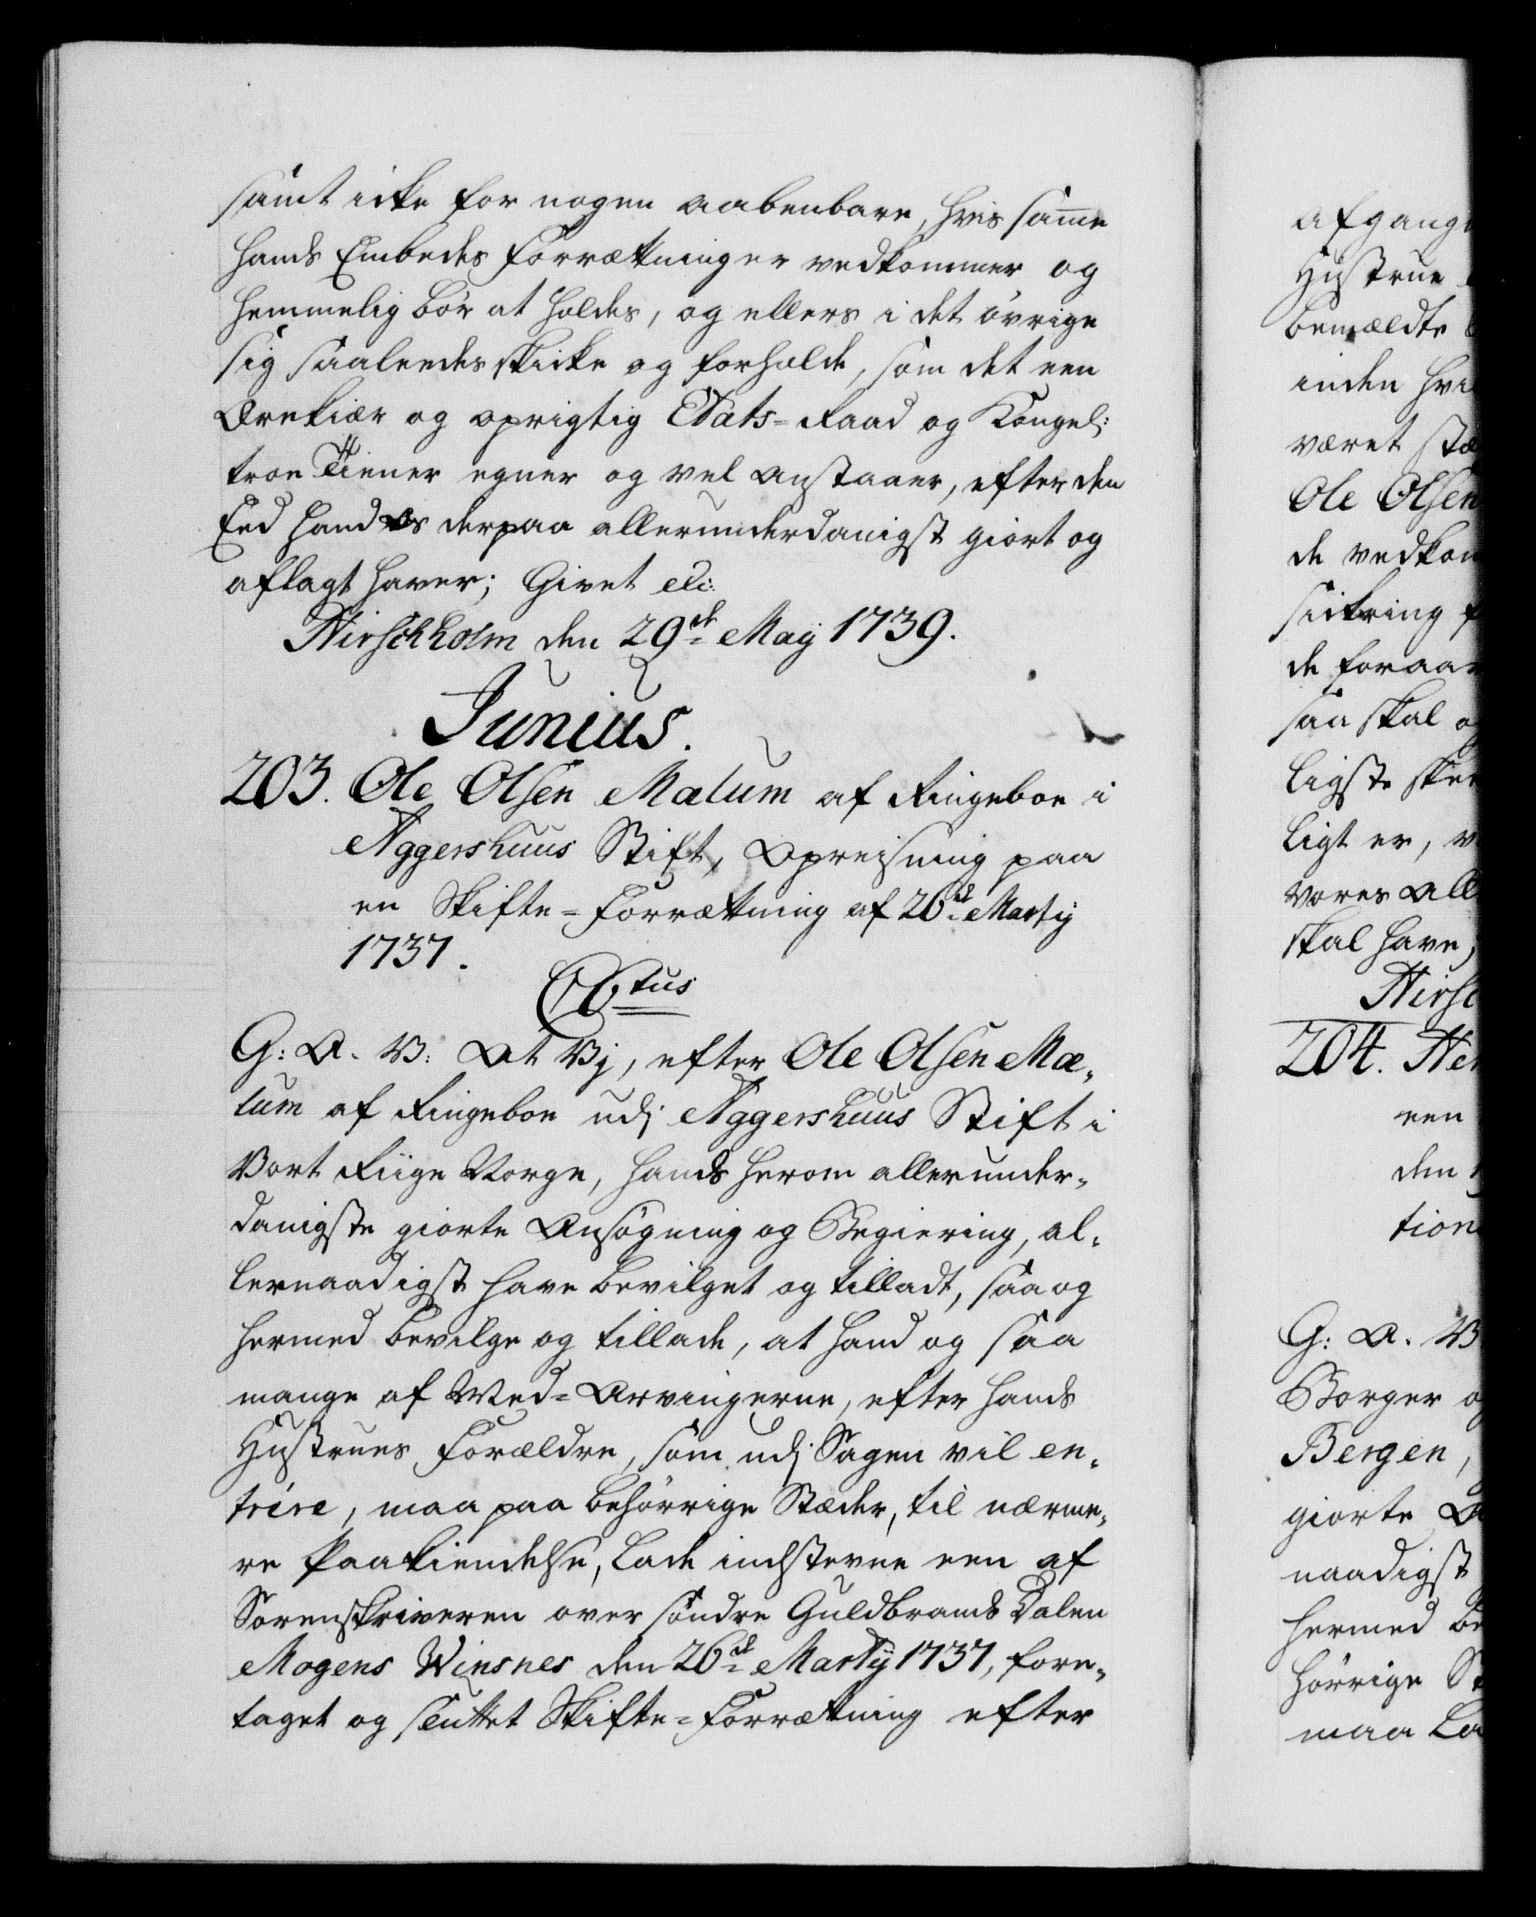 samt icke for nogen aabenbare, hvis samme
hands Embedes Forrættninger vedkommer og
hemmelig bör at holdes, og ellers i det övrige
sig saaleedes skicke og forholde, som det een
Ærekiær og oprigtig Etats-Raad og Kongel:
troe Tiener egner og vel anstaaer, efter den
Eed hand Os derpaa allerunderdanigst giort og
aflagt haver; Givet etc:
Hirschholm den 29de May 1739.
Junius.
203. Ole Olsen Mælum af Ringeboe i
Aggershuus Stift, Opreisning paa
en Skifte-Forrættning af 26de Martij
1737.
G: A. V: At Vj, efter Ole Olsen Mæ-
lum af Ringeboe udj Aggershuus Stift i
Vort Riige Norge, hands herom allerunder-
danigste giorte Ansögning og Begiering, al-
lernaadigst have bevilget og tilladt, saa og
hermed bevilge og tillade, at hand og saa
mange af Med-Arvingerne, efter hands
Hustrues Forældre, som udj Sagen vil en-
trere, maa paa behörrige Stæder, til nærme-
re Paakiendelse, lade indstevne een af
Sorenskriveren over söndre Guldbrands Dalen
Mogens Winsnes den 26de Martij 1737, fore-
taget og sluttet Skifte-Forrættning efter
afgang
Hustrue
bemældte
inden hvi
været
Ole Olsen
de vedkom
sickring
de foraar
saa skal
ligste
ligt er,
vores All
skal have,
Hirsc
204.
een
den
tion
G: A. V
Borger
Bergen,
giorte
naadigst
hermed be
hörrige St
maa La